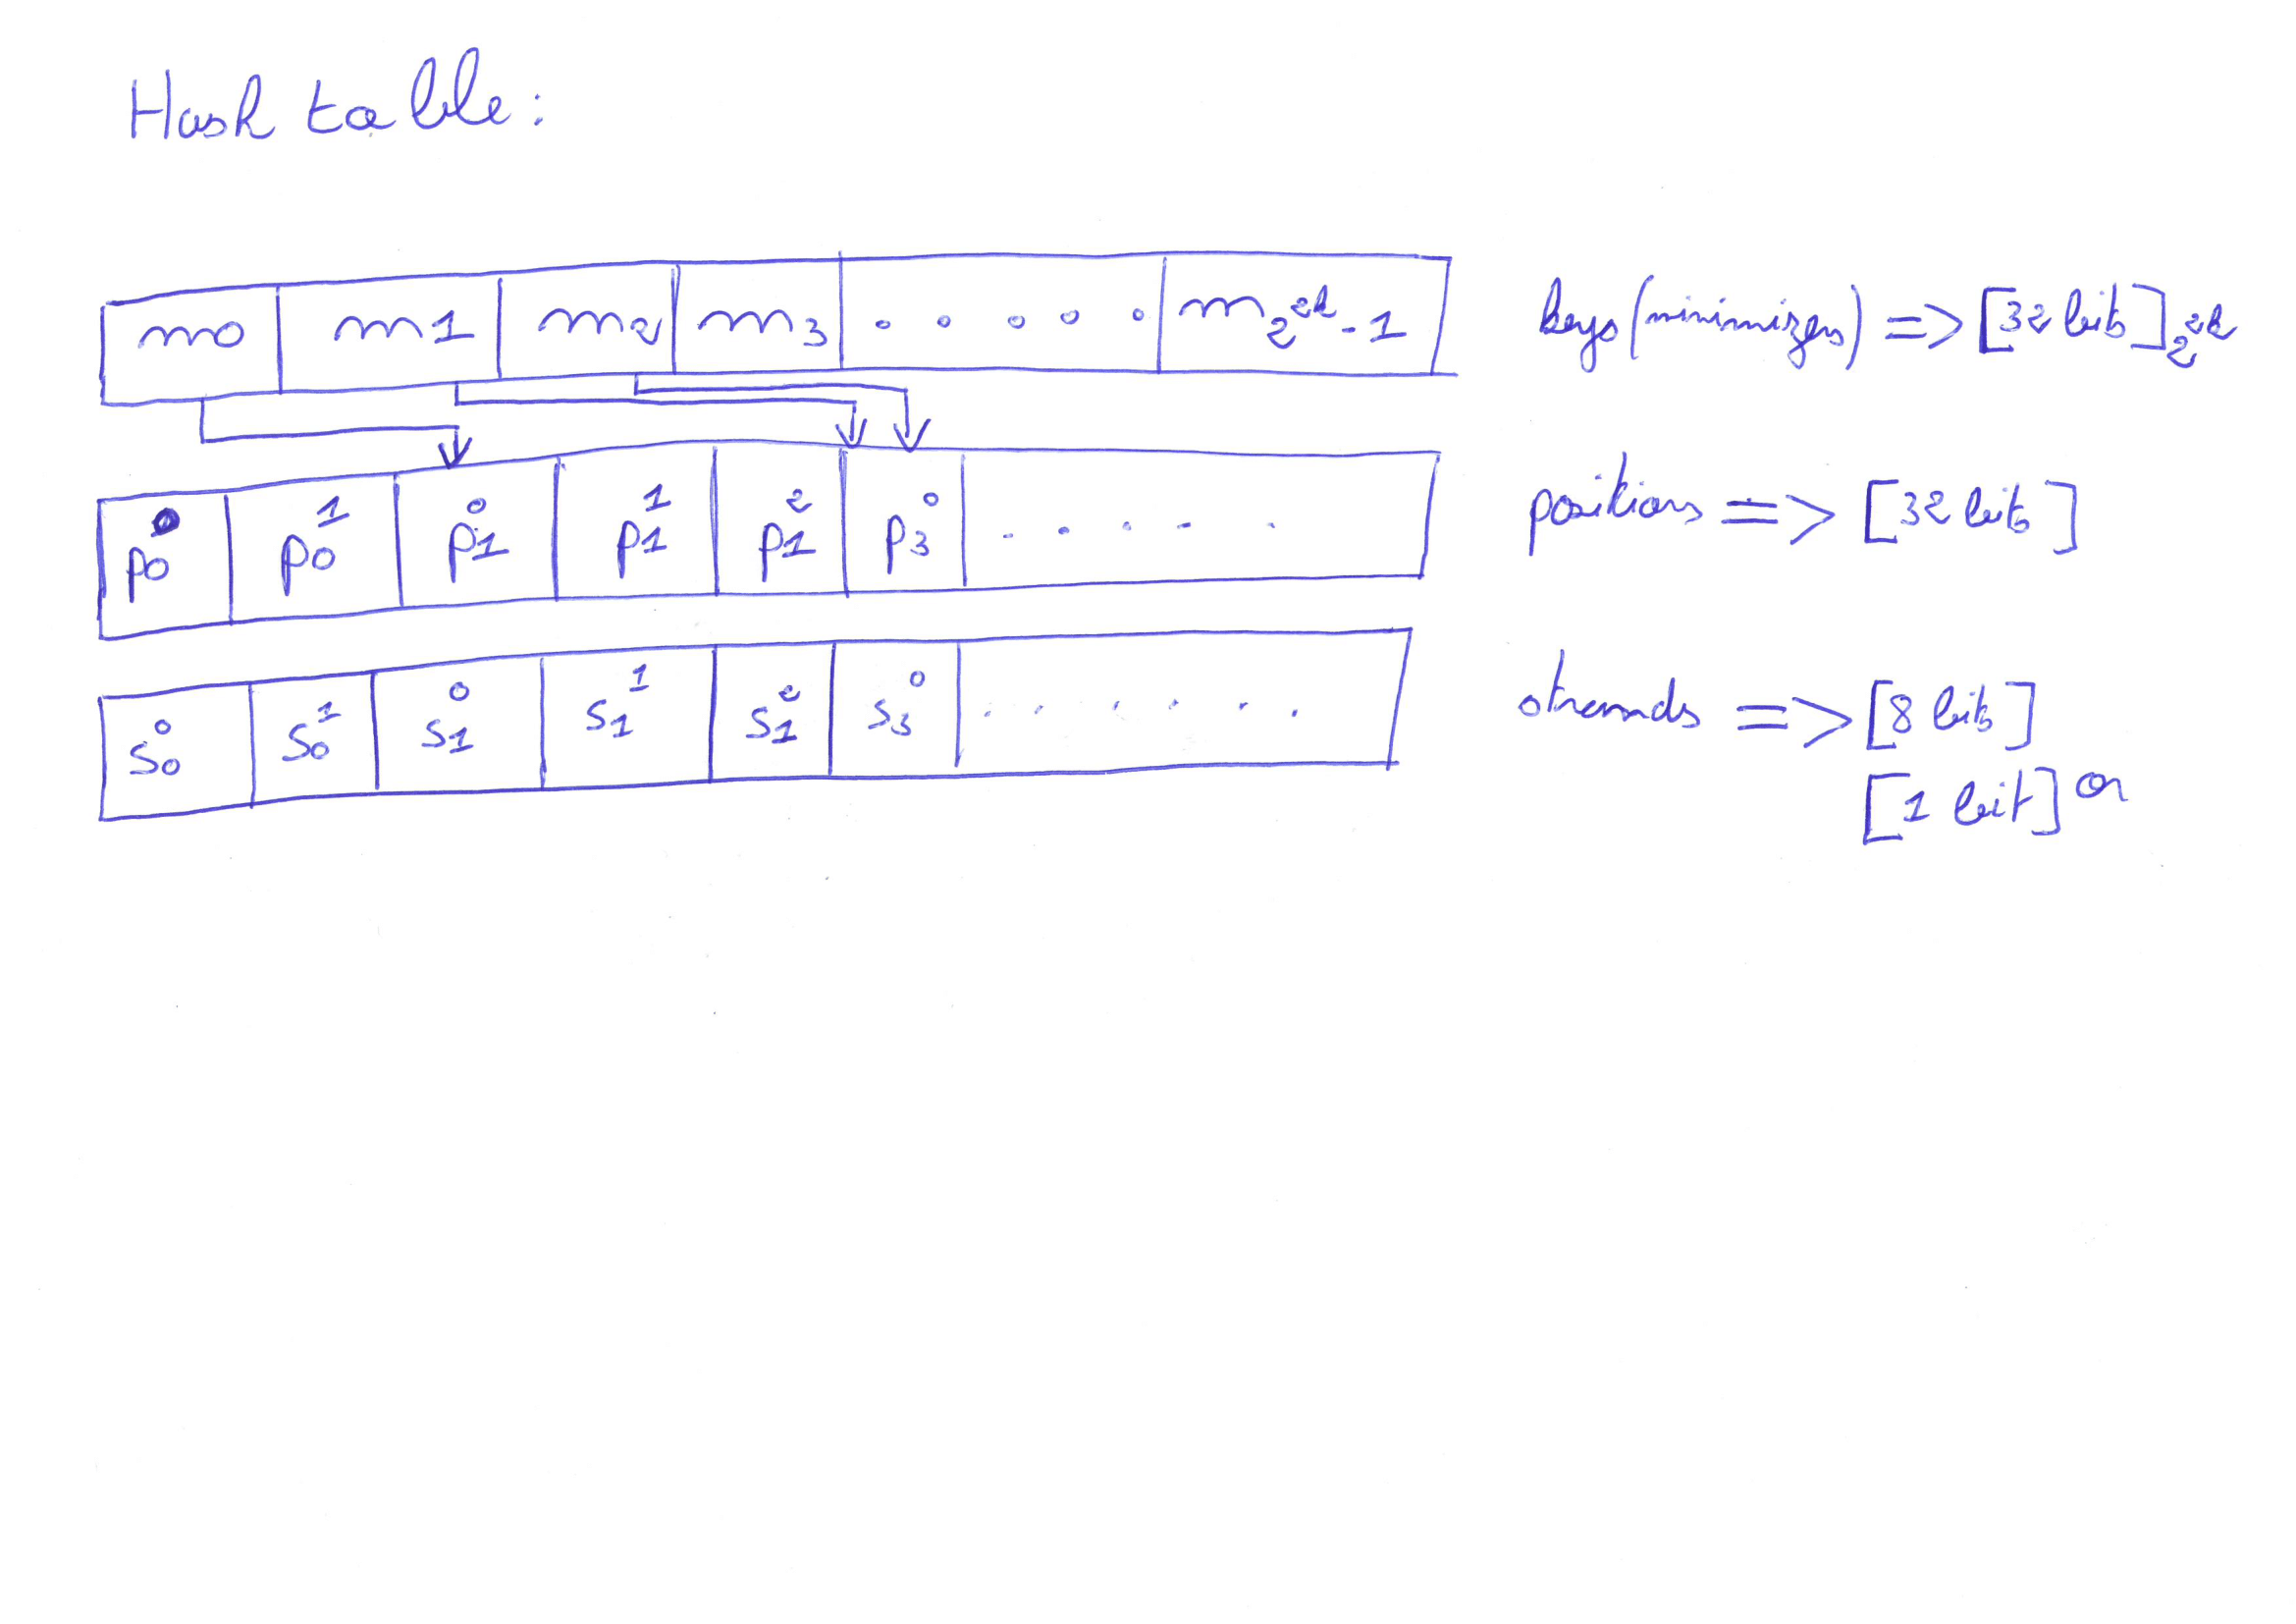 Hash table:
m0 m1 m2 m3 . . . . . m2^2k-1 keys (minimizers) => [32 bits]2^2k
p0^0 p0^1 p1^0 p1^1 p1^2 p3^0 . . . . . positions => [32 bits]
s0^0 s0^1 s1^0 s1^1 s1^2 s3^0 . . . . . . strands => [8 bits]
[1 bit] or